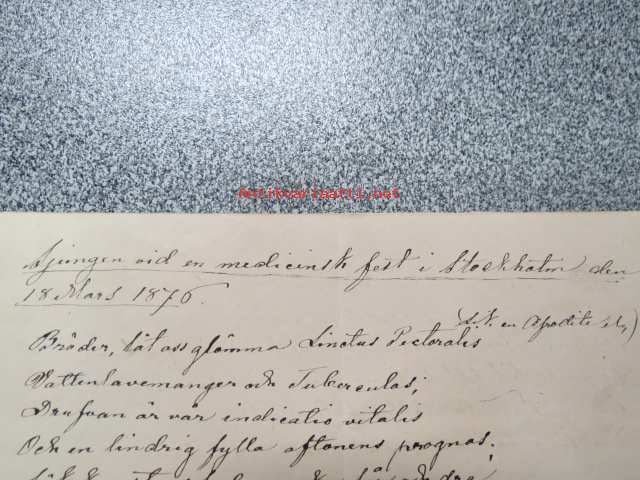 Antikvariaatti.net
Sjungen vid en medicinsk fest i Stockholm den
18 Mars 1876.
(s.k. en Afrodite
Bröder, låt oss glömma Linctus Pectoralis
Vattenlavemanger och Tuberculos;
Drufvan är vår indicatio vitalis
Och en lindrig fylla aftonens prognos.